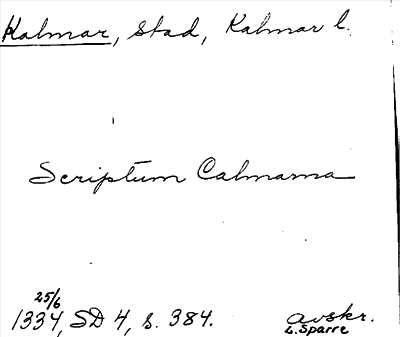 Kalmar, stad, Kalmar l.
Scriptum Calmarna
25/6
1334, SD 4, s. 384.
avskr.
L. Sparre